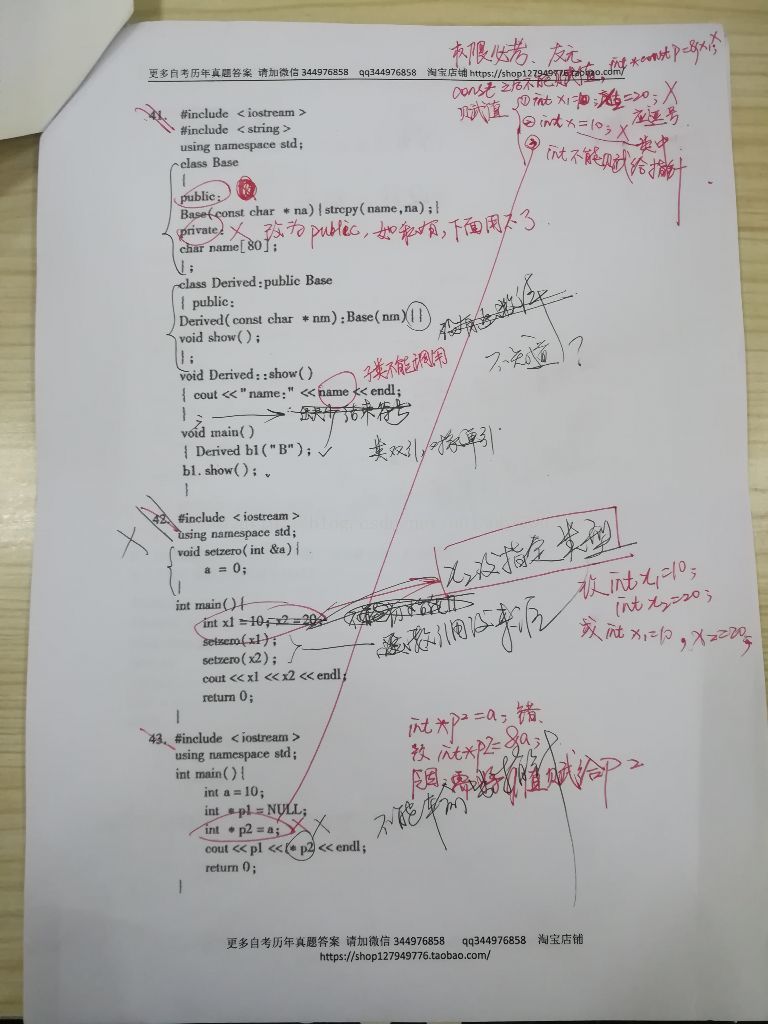 权限必考、友元
更多自考历年真题答案 请加微信 344976858 qq344976858 淘宝店铺 https://shop127949776.taobao.com/
int *const p=&x;
const 之后不能赋值,
赋值
① int x1=10; =20; X
② int x=10; X 应逗号
类中
③ int 不能赋试给指针
41. #include <iostream>
#include <string>
using namespace std;
class Base
{
public:
Base(const char * na){strcpy(name,na);}
private: X 改为public, 如私有, 下面用不了
char name[80];
};
class Derived:public Base
{ public:
Derived(const char * nm):Base(nm){}
void show();
};
不知道?
void Derived::show() 子类不能调用
{ cout<<"name:"<<name<<endl;
} ; 结束符号
void main()
{ Derived b1("B"); 类双引, 单引
b1.show();
}
X 42. #include <iostream>
using namespace std;
void setzero(int &a){
a = 0;
}
x2没指定类型
int main(){
改 int x1=10;
int x2=20;
int x1=10; x2=20;
setzero(x1); 数引用没来江
或 int x1=10, x2=20;
setzero(x2);
cout<<x1<<x2<<endl;
return 0;
}
int *p2=a; 错
43. #include <iostream>
改 int *p2=&a;
using namespace std;
int main(){
int a=10;
int * p1=NULL;
int * p2=a; X X
不能
cout<<p1<<(* p2<<endl;
return 0;
}
更多自考历年真题答案 请加微信 344976858 qq344976858 淘宝店铺
https://shop127949776.taobao.com/